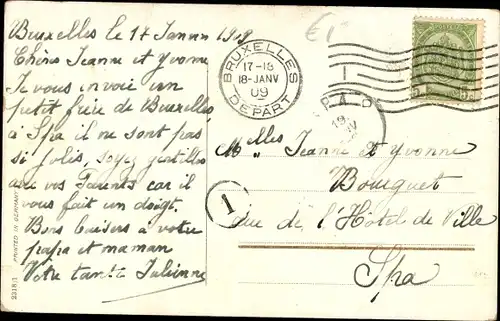 Bruxelles le 17 Janvier 1909
Chères Jeanne et Yvonne
Je vous envoi un
petit
de Bruxelles
à Spa il ne sont pas
si jolis, soyez gentilles
avec vos Parents car il
vous fait un doigt.
Bons baisers à votre
papa et maman
Votre tante Julienne
BRUXELLES
17-18
18-JANV
09
DEPART
Melles Jeanne et Yvonne
Bouquet
rue de l'Hôtel de Ville
Spa
1
PRINTED IN GERMANY